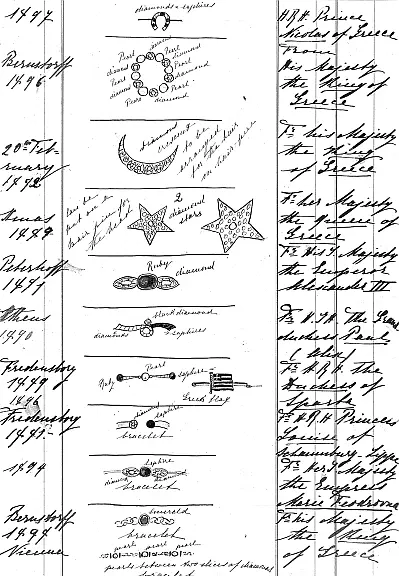 1897
diamonds & sapphires
H.R.H. Prince
Nicolas of Greece
Bernstorff
1896
Pearl
diamond
Pearl
diamond
Pearl
diamond
Pearl
diamond
From
His Majesty
the King of
Greece
20th Feb-
ruary
1892
diamond
crescent
to be
arranged
to the hair
on hair-pins
Fr his Majesty
the King
of Greece
Xmas
1889
can be
put on a
hair pin for
the head
2
diamond
stars
Fr her Majesty
the Queen of
Greece
Peterhoff
Ruby
diamond
Fr His I. Majesty
the Emperor
Alexander III
Athens
1890
black diamond
diamonds
sapphires
Fr H.I.H. The Grand
duchess Paul
Fredensborg
1889
Ruby
Pearl
saphire
Greek flag
Fr H.R.H. the
Duchess of
Sparta
1896
Fredensborg
diamond
saphire
bracelet
Fr H.R.H Princess
Louise of
Schaumburg-Lippe
1894
saphire
diamond
diamond
bracelet
Fr Her I. Majesty
the Empress
Marie Feodrovna
Bernstorff
emerald
bracelet
Fr his Majesty
the King
of Greece
Vienne
pearl pearl pearl
pearls between two slices of diamond
bracelet